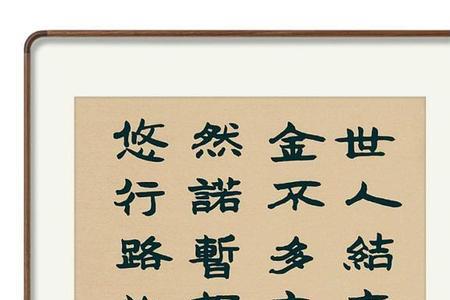 世人結
金不多
然諾暫
悠行路